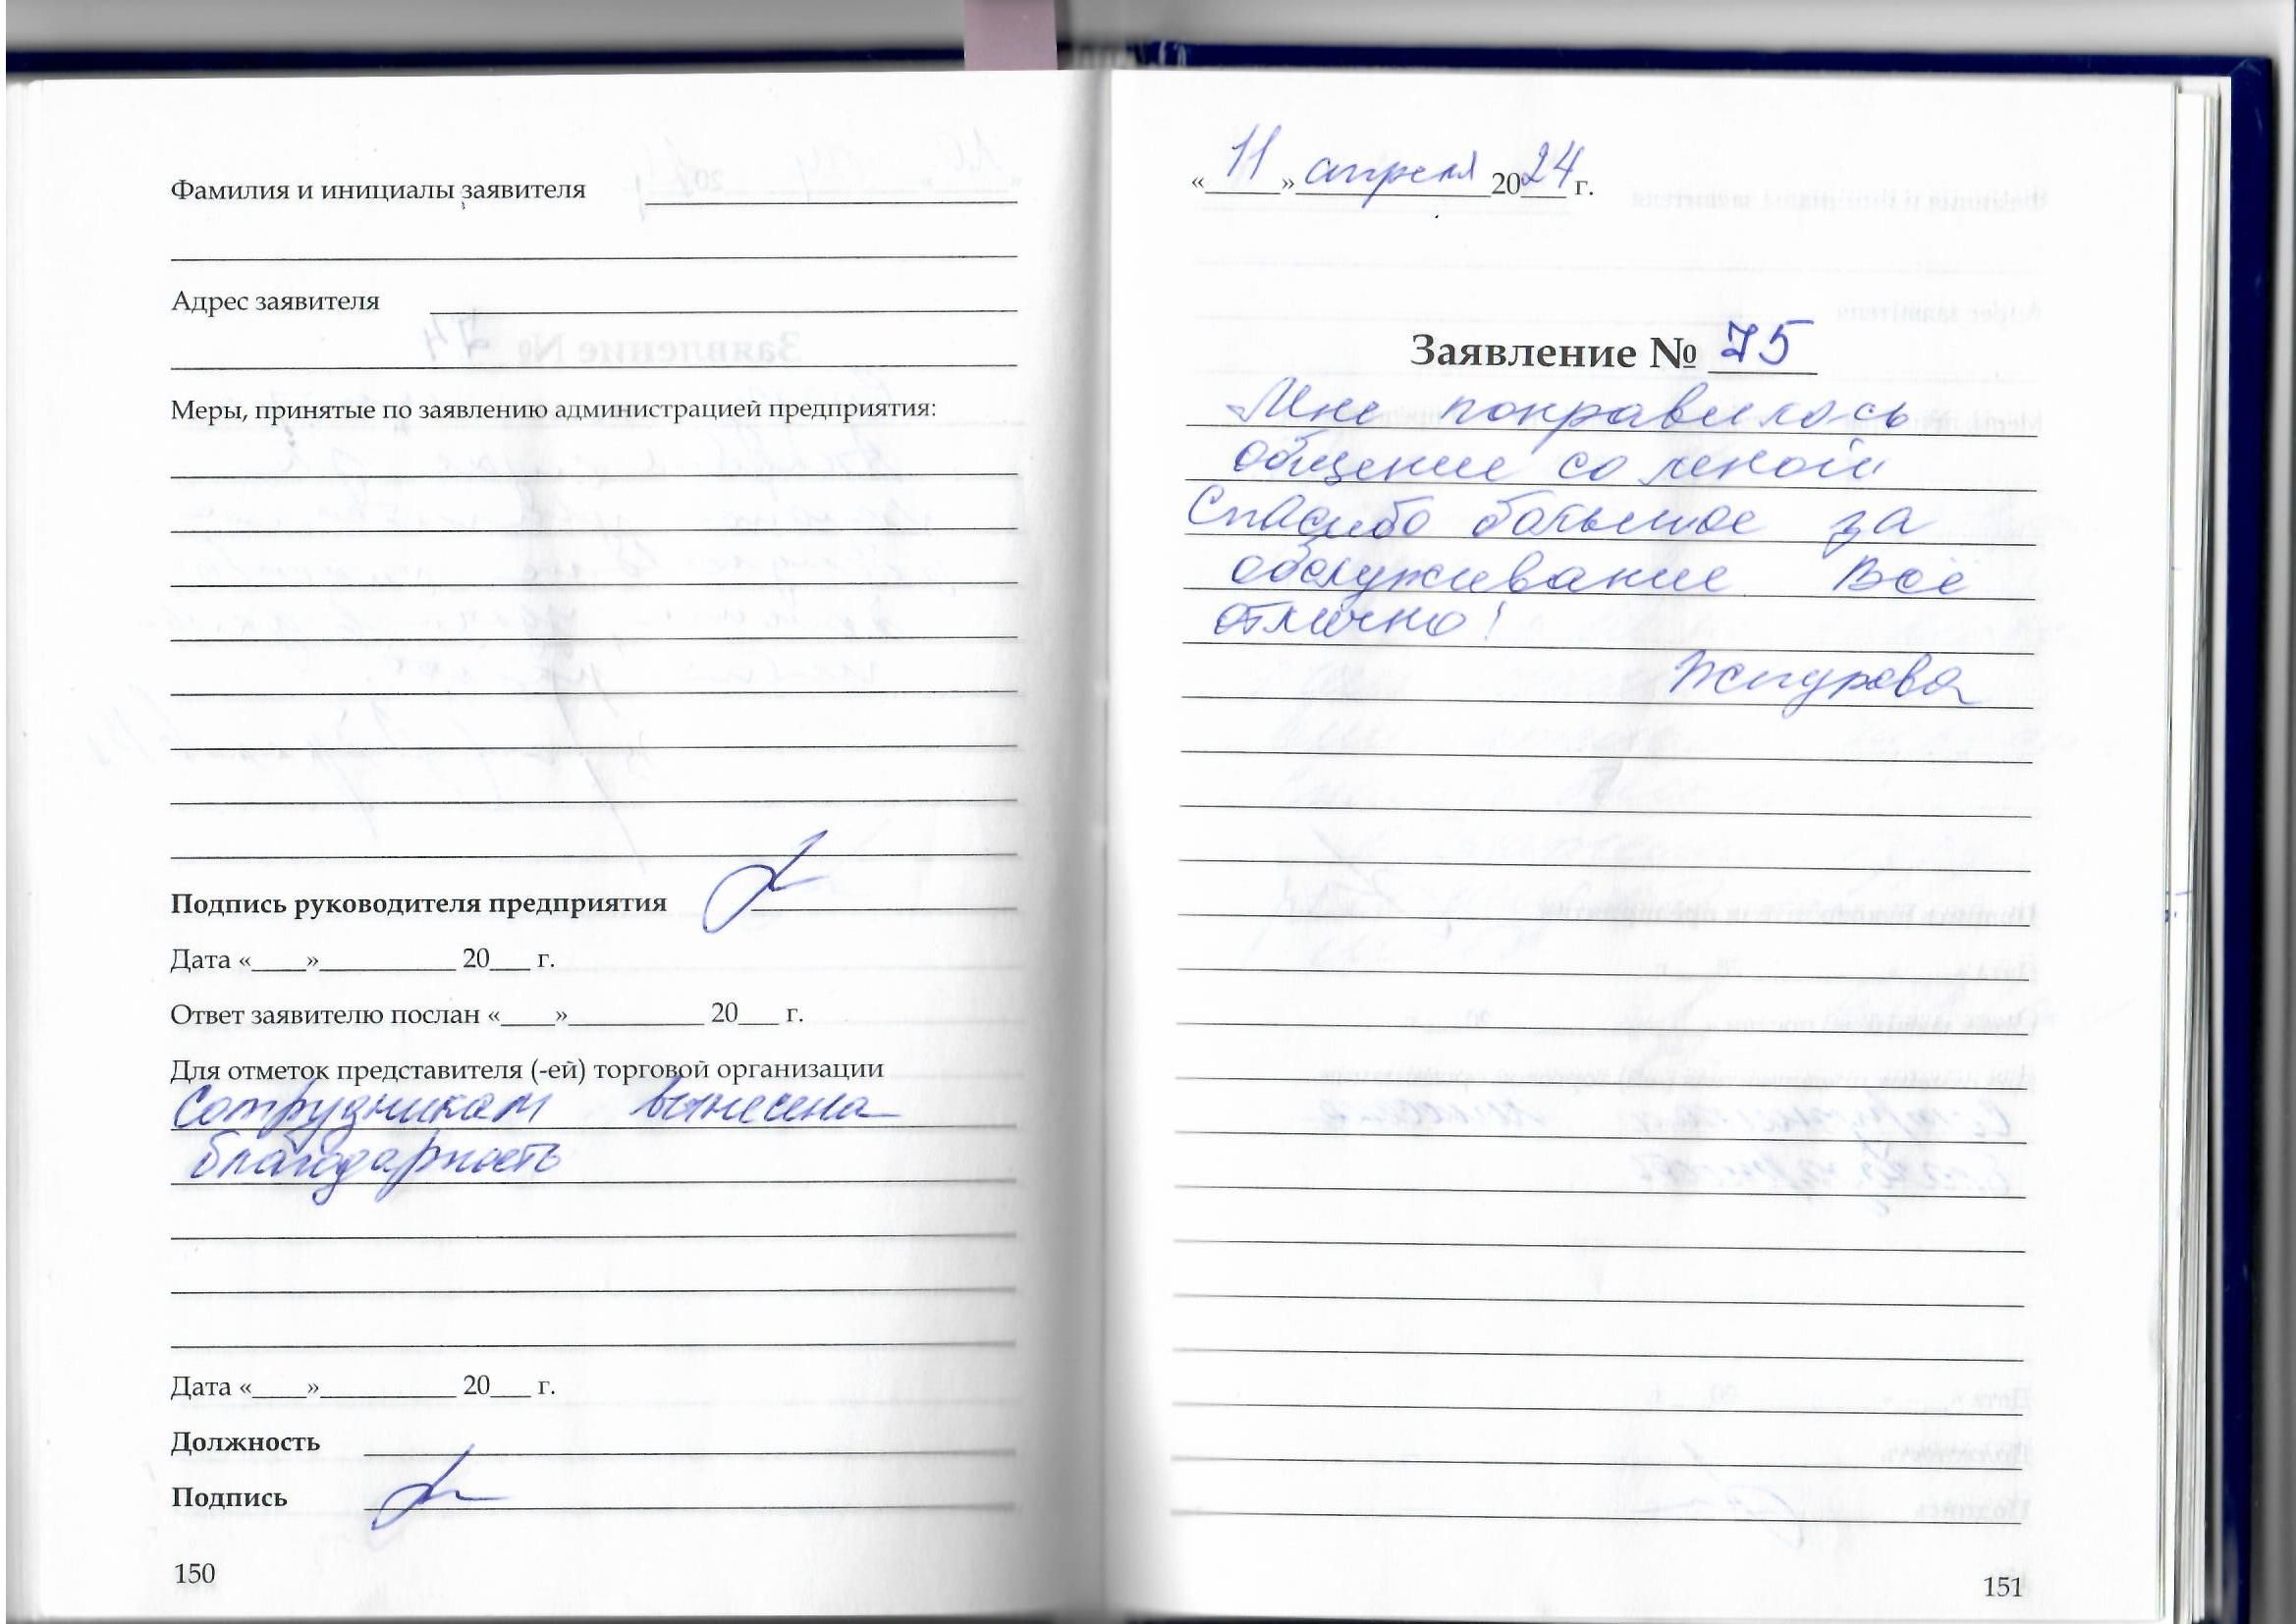 Фамилия и инициалы заявителя
Адрес заявителя
Меры, принятые по заявлению администрацией предприятия:
Подпись руководителя предприятия
Дата «____»__________ 20___ г.
Ответ заявителю послан «____»__________ 20___ г.
Для отметок представителя (-ей) торговой организации
Сотрудникам вынесена
благодарность
Дата «____»__________ 20___ г.
Должность
Подпись
150
«11» апреля 2024 г.
Заявление № 75
Мне понравилось
общение со мной
Спасибо большое за
обслуживание Всё
отлично!
151